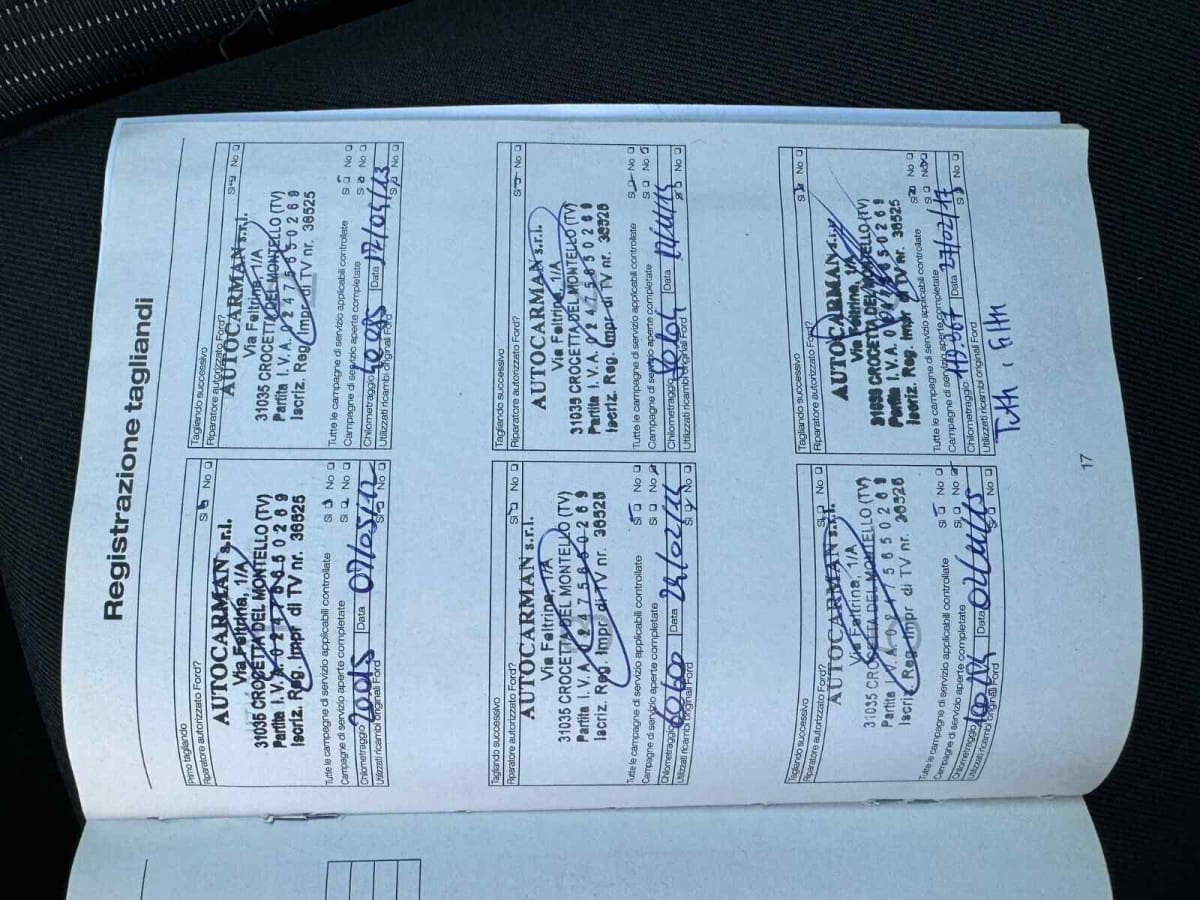 Registrazione tagliandi
Primo tagliando
Riparatore autorizzato Ford? Sì No
AUTOCARMAN s.r.l.
Via Feltrina, 1/A
31035 CROCETTA DEL MONTELLO (TV)
Partita I.V.A. 02475650269
Iscriz. Reg. Impr di TV nr. 36525
Tutte le campagne di servizio applicabili controllate Sì No
Campagne di servizio aperte completate Sì No
Chilometraggio 20015 Data 07/05/12
Utilizzati ricambi originali Ford Sì No
Tagliando successivo
Riparatore autorizzato Ford? Sì No
AUTOCARMAN s.r.l.
Via Feltrina, 1/A
31035 CROCETTA DEL MONTELLO (TV)
Partita I.V.A. 02475650269
Iscriz. Reg. Impr di TV nr. 36525
Tutte le campagne di servizio applicabili controllate Sì No
Campagne di servizio aperte completate Sì No
Chilometraggio Data
Utilizzati ricambi originali Ford Sì No
Tagliando successivo
Riparatore autorizzato Ford? Sì No
AUTOCARMAN s.r.l.
Via Feltrina, 1/A
31035 CROCETTA DEL MONTELLO (TV)
Partita I.V.A. 02475650269
Iscriz. Reg. Impr di TV nr. 36525
Tutte le campagne di servizio applicabili controllate Sì No
Campagne di servizio aperte completate Sì No
Chilometraggio 60600 Data
Utilizzati ricambi originali Ford Sì No
Tagliando successivo
Riparatore autorizzato Ford? Sì No
AUTOCARMAN s.r.l.
Via Feltrina, 1/A
31035 CROCETTA DEL MONTELLO (TV)
Partita I.V.A. 02475650269
Iscriz. Reg. Impr di TV nr. 36525
Tutte le campagne di servizio applicabili controllate Sì No
Campagne di servizio aperte completate Sì No
Chilometraggio Data
Utilizzati ricambi originali Ford Sì No
Tagliando successivo
Riparatore autorizzato Ford? Sì No
AUTOCARMAN s.r.l.
Via Feltrina, 1/A
31035 CROCETTA DEL MONTELLO (TV)
Partita I.V.A. 02475650269
Iscriz. Reg. Impr di TV nr. 36525
Tutte le campagne di servizio applicabili controllate Sì No
Campagne di servizio aperte completate Sì No
Chilometraggio Data 02/11/15
Utilizzati ricambi originali Ford Sì No
Tagliando successivo
Riparatore autorizzato Ford? Sì No
AUTOCARMAN s.r.l.
Via Feltrina, 1/A
31035 CROCETTA DEL MONTELLO (TV)
Partita I.V.A. 02475650269
Iscriz. Reg. Impr di TV nr. 36525
Tutte le campagne di servizio applicabili controllate Sì No
Campagne di servizio aperte completate Sì No
Chilometraggio Data 27/02/17
Utilizzati ricambi originali Ford Sì No
Tutti i filtri
17